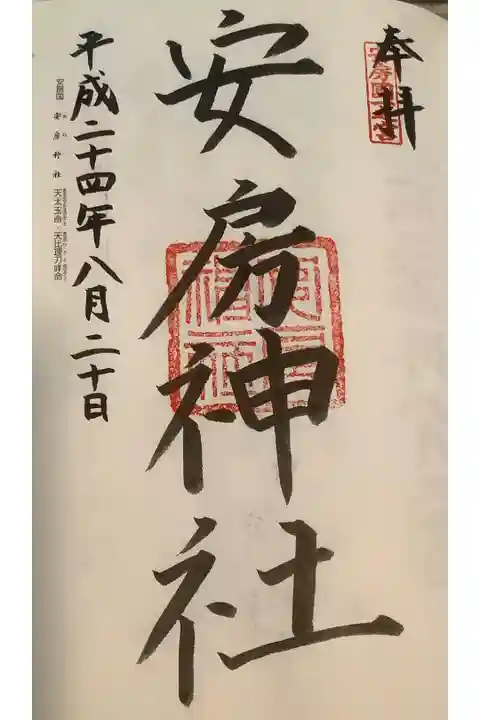 奉拝
安房國一之宮
安房神社
平成二十四年八月二十日
安房国 安房神社 天太玉命・天比理刀咩命